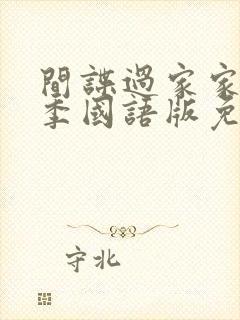 間諜過家家
季國語版免
守北